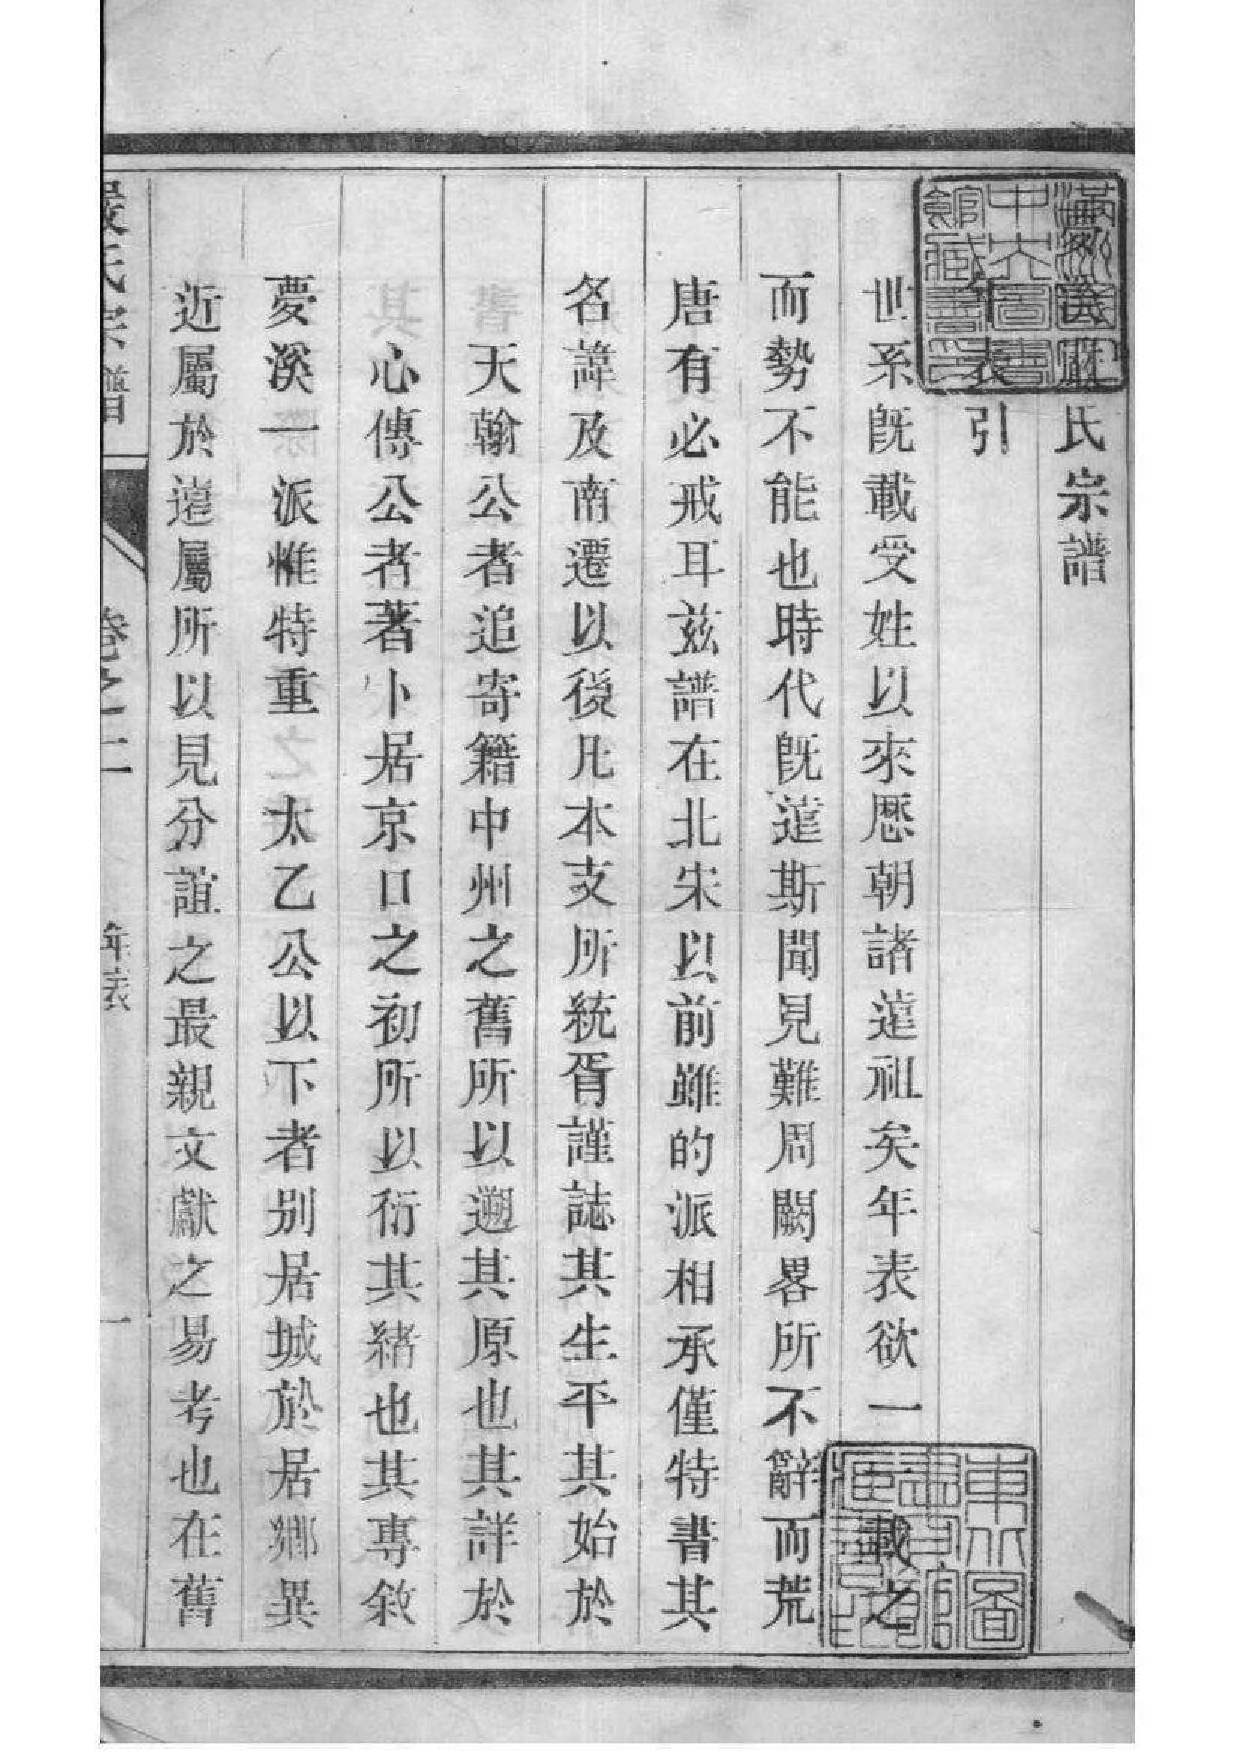 氏宗譜
年表引
世系既載受姓以來歷朝諸遠祖矣年表欲一載之
而勢不能也時代既遠斯聞見難周闕畧所不辭而荒
唐有必戒耳茲譜在北宋以前雖的派相承僅特書其
名諱及南遷以後凡本支所統胥謹誌其生平其始於
天翰公者追寄籍中州之舊所以遡其原也其詳於
心傳公者著卜居京口之初所以衍其緒也其專敘
夢溪一派惟特重太乙公以下者別居城於居鄉異
近屬於遠屬所以見分誼之最親文獻之易考也在舊
嚴氏宗譜
卷之二
年表
一